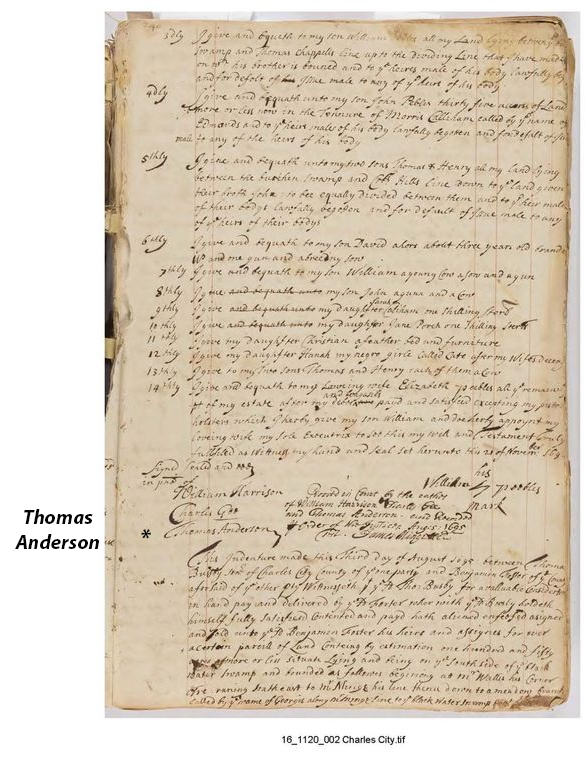 3dly I give and bequath to my son William all my Land lying between
Swamp and Thomas Chappels line up to the Dividing Line that I have made
on wch his brother is bound and to ye heires male of his body lawfully be
and for defolt of Isue male to any of ye heirs of his body
4dly I give and bequath unto my son John Pebles thirty five acres of Land
more or less now in the Tennure of Morris Calleham called by ye name of
Edmonds and to ye heirs male of his body lawfully begoten and for defalt of
male to any of the heirs of his body
5thly I give and bequath unto my two sons Thomas & Henry all my land lying
between the butchen swamp and Hills line down to ye land given
their broth John: to bee equally divided between them and to ye heirs male
of their bodys lawfully begoten and for default of Isue male to any
of ye heirs of their bodys
6thly I give and bequath to my son David a hors about three years old brand
WP and one gun and a breeding sow
7thly I give and bequath to my son William a young Cow a sow and a gun
8thly I give and bequath unto my son John a gunn and a Cow
9thly I give and bequath unto my daughter Sarah Caleham one shilling sterl
10thly I give and bequath unto my daughter Jane Perch one shilling sterl
11thly I give my Daughter Christian a feather bed and furniture
12thly I give my Daughter Hanah my negroe girle Called Cate after my Wifes decea
13thly I give to my two sons Thomas and Henry each of them a Cow
14thly I give and bequath to my Loveing wife Elizabeth peebles all ye remain
pt of my estate after my debts and funerals payd and satisfied excepting my pistols
holsters which I hereby give my son William and doe herby appoynt my
loveing wife my Sole Executrix to see this my will and Testament truly
fulfilled as witness my hand and seal set hereunto this 28 of Novemr 169
Signd sealed and
in pres of
his
William peebles
mark
William Harrison
Charles Gee
Thomas Anderson
Proved in Court by the oathes
of William Harrison Charles Gee
and Thomas Anderson and Recorded
p Order of the Justices Aug: 5: 1695
Test. James
Thomas
Anderson
*
This Indenture made this Third day of August 1695 between Thomas
Busby senr of Charles City County of ye one party and Benjamin Foster of ye County
aforsaid of ye other pty Witnesseth yt ye sd Thos Busby for a valuable Consideration
in hand pay and delivered by ye sd Forster wher with ye sd Busby holdeth
himself fully satisfied Contented and payd hath aliened enfeofed assigned
and sold unto ye sd Benjamin Foster his heirs and assignes for ever
a certain parcel of Land Containg by estimation one hundred and fifty
acres of more or less scituate Lying and being on ye South side of ye black
Water Swamp and bounded as followes begining at Mr Wallis his Corner
tree runing south east to Mr his line thence down to a meadow branch
called by ye name of Georges along line to ye black Water Swamp
16_1120_002 Charles City.tif